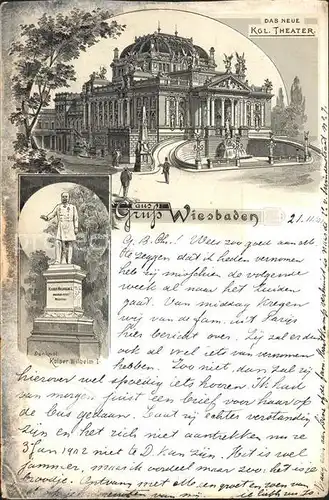 DAS NEUE
KGL. THEATER.
Gruß aus Wiesbaden
21.11.
G. B. Ch.! Wees zoo goed aan
te zeggen dat ik heden vernomen
heb misschien de volgende
week al naar het Zuiden
gaat. Van middag kregen
wij van de fam. uit Parijs
hier bericht over. Zij zal er dan
ook al wel iets van vernomen
hebben. Zoo niet, dan zal zij
hierover wel spoedig iets hooren. Ik had
van morgen juist een brief voor haar op
de bus gedaan. Laat zij echter verstandig
zijn en het zich niet aantrekken nu ze
3 Jan 1902 niet te D. kan zijn. Het is wel
jammer, maar ik oordeel maar zoo: het is ze
broodje. Ontvang met allen een groet en zoen van
KAISER WILHELM I.
Denkmal
Kaiser Wilhelm I.